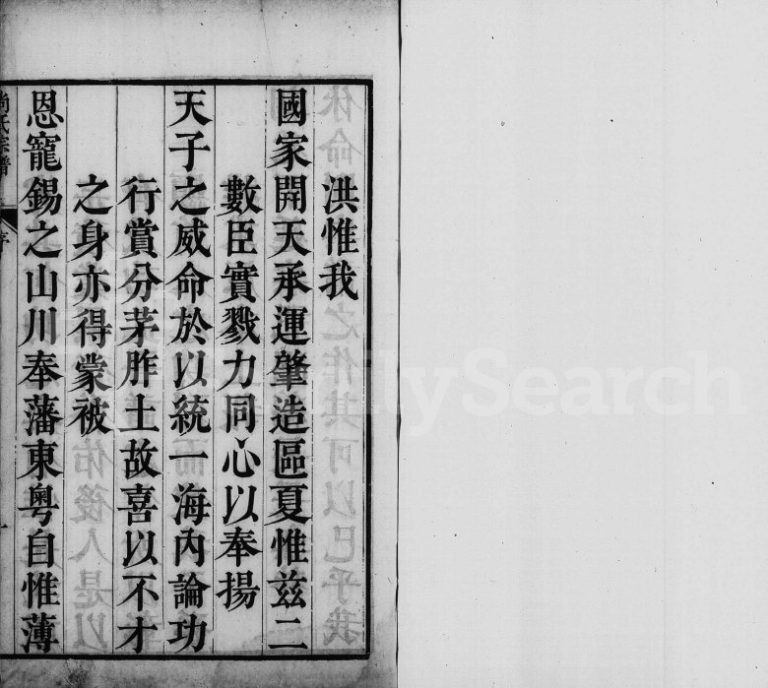 洪惟我
國家開天承運肇造區夏惟茲二
數臣實戮力同心以奉揚
天子之威命於以統一海內論功
行賞分茅胙土故喜以不才
之身亦得蒙被
恩寵錫之山川奉藩東粤自惟薄
尚氏宗譜
序
一
FamilySearch